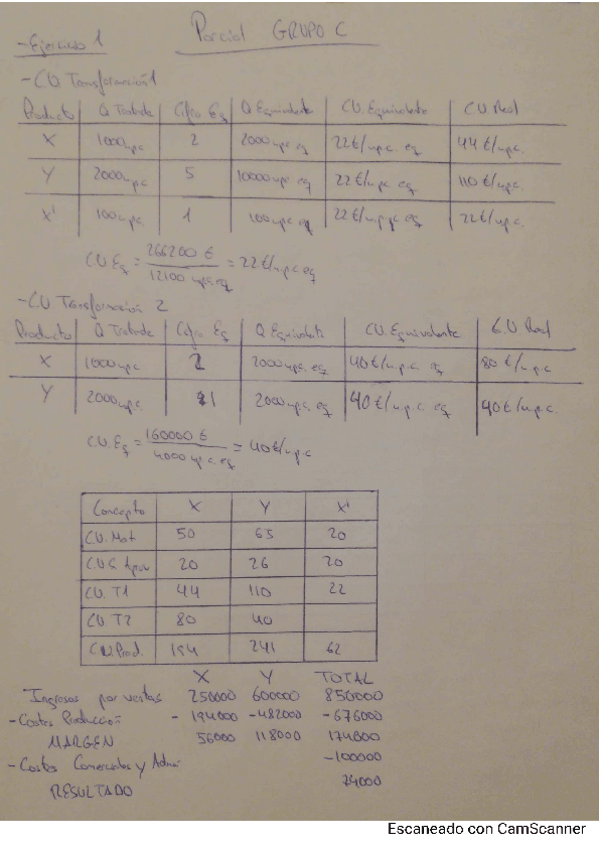 Parcial GRUPO C
- Ejercicio 1
- CU Transformación 1
Producto Q Tratada Cifra Eq Q Equivalente CU. Equivalente CU. Real
X 1000 upc 2 2000 upc eq 22 €/u.p.c. eq 44 €/upc.
Y 2000 upc 5 10000 upc eq 22 €/u.p.c. eq 110 €/upc.
X' 100 upc. 1 100 upc eq 22 €/u.p.c. eq 22 €/upc.
CU. Eq = 266200 € / 12100 upc eq = 22 €/upc eq
- CU Transformación 2
Producto Q Tratada Cifra Eq Q Equivalente CU. Equivalente C.U Real
X 1000 upc 2 2000 upc. eq 40 €/u.p.c. eq 80 €/upc.
Y 2000 upc. 1 2000 upc. eq 40 €/u.p.c. eq 40 €/upc.
CU. Eq = 160000 € / 4000 upc eq = 40 €/upc
Concepto X Y X'
CU. Mat 50 65 20
C.U.S. Aprov 20 26 20
CU. T1 44 110 22
CU T2 80 40
C.U. Prod. 194 241 62
X Y TOTAL
Ingresos por ventas 250000 600000 850000
- Costes Producción - 194000 - 482000 - 676000
MARGEN 56000 118000 174000
- Costes Comerciales y Admi. -100000
RESULTADO 74000
Escaneado con CamScanner